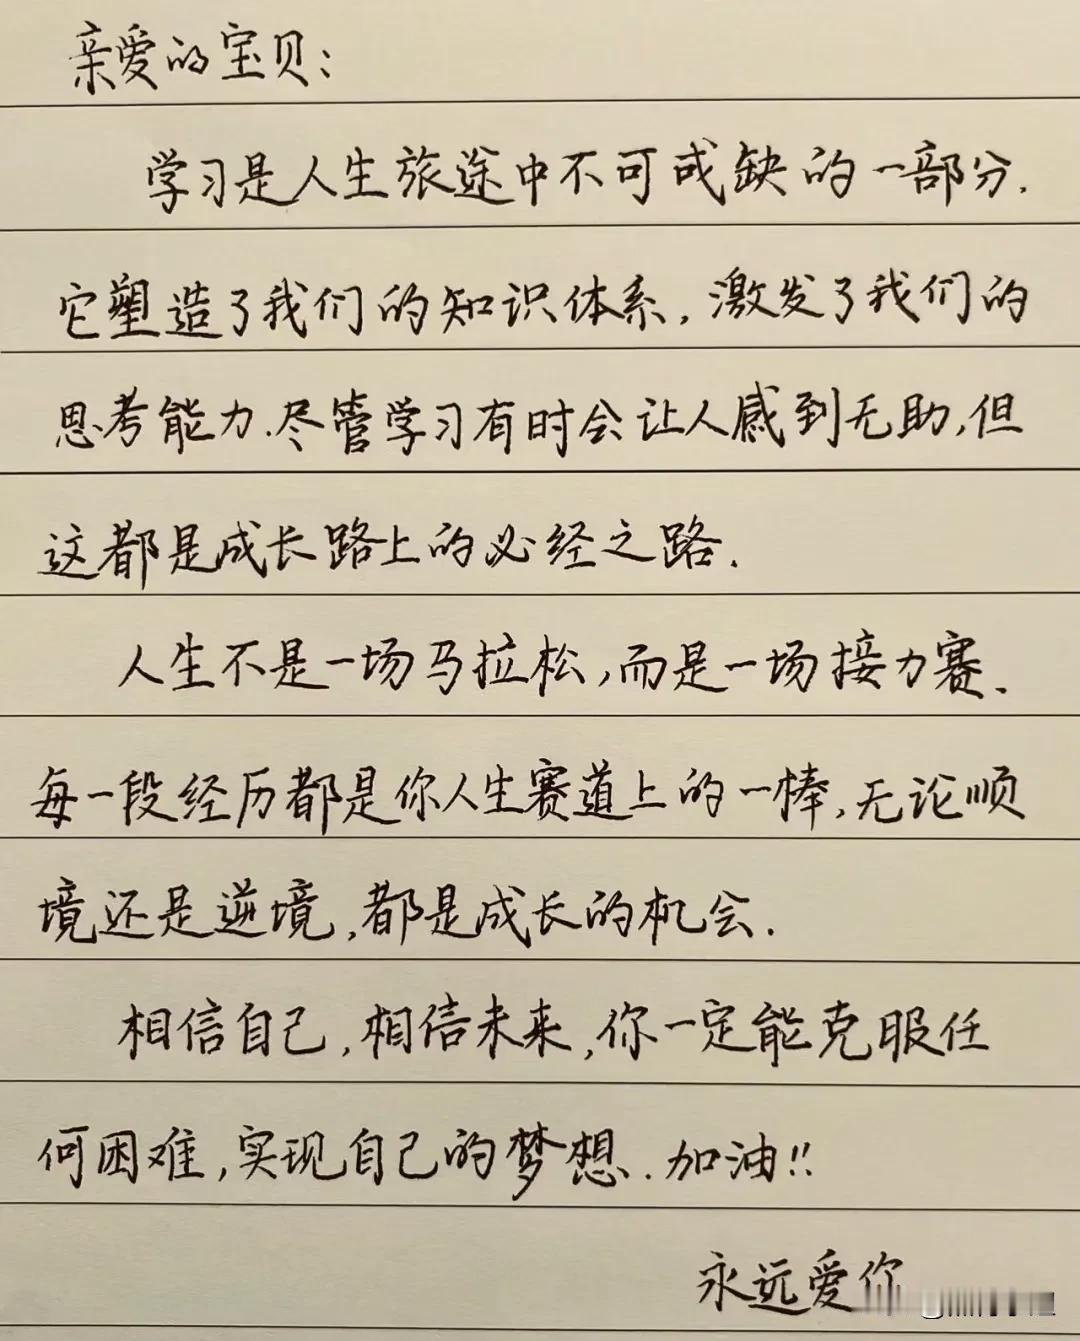 亲爱的宝贝：
学习是人生旅途中不可或缺的一部分.
它塑造了我们的知识体系, 激发了我们的
思考能力.尽管学习有时会让人感到无助,但
这都是成长路上的必经之路.
人生不是一场马拉松,而是一场接力赛.
每一段经历都是你人生赛道上的一棒,无论顺
境还是逆境,都是成长的机会.
相信自己,相信未来,你一定能克服任
何困难,实现自己的梦想.加油!!
永远爱你